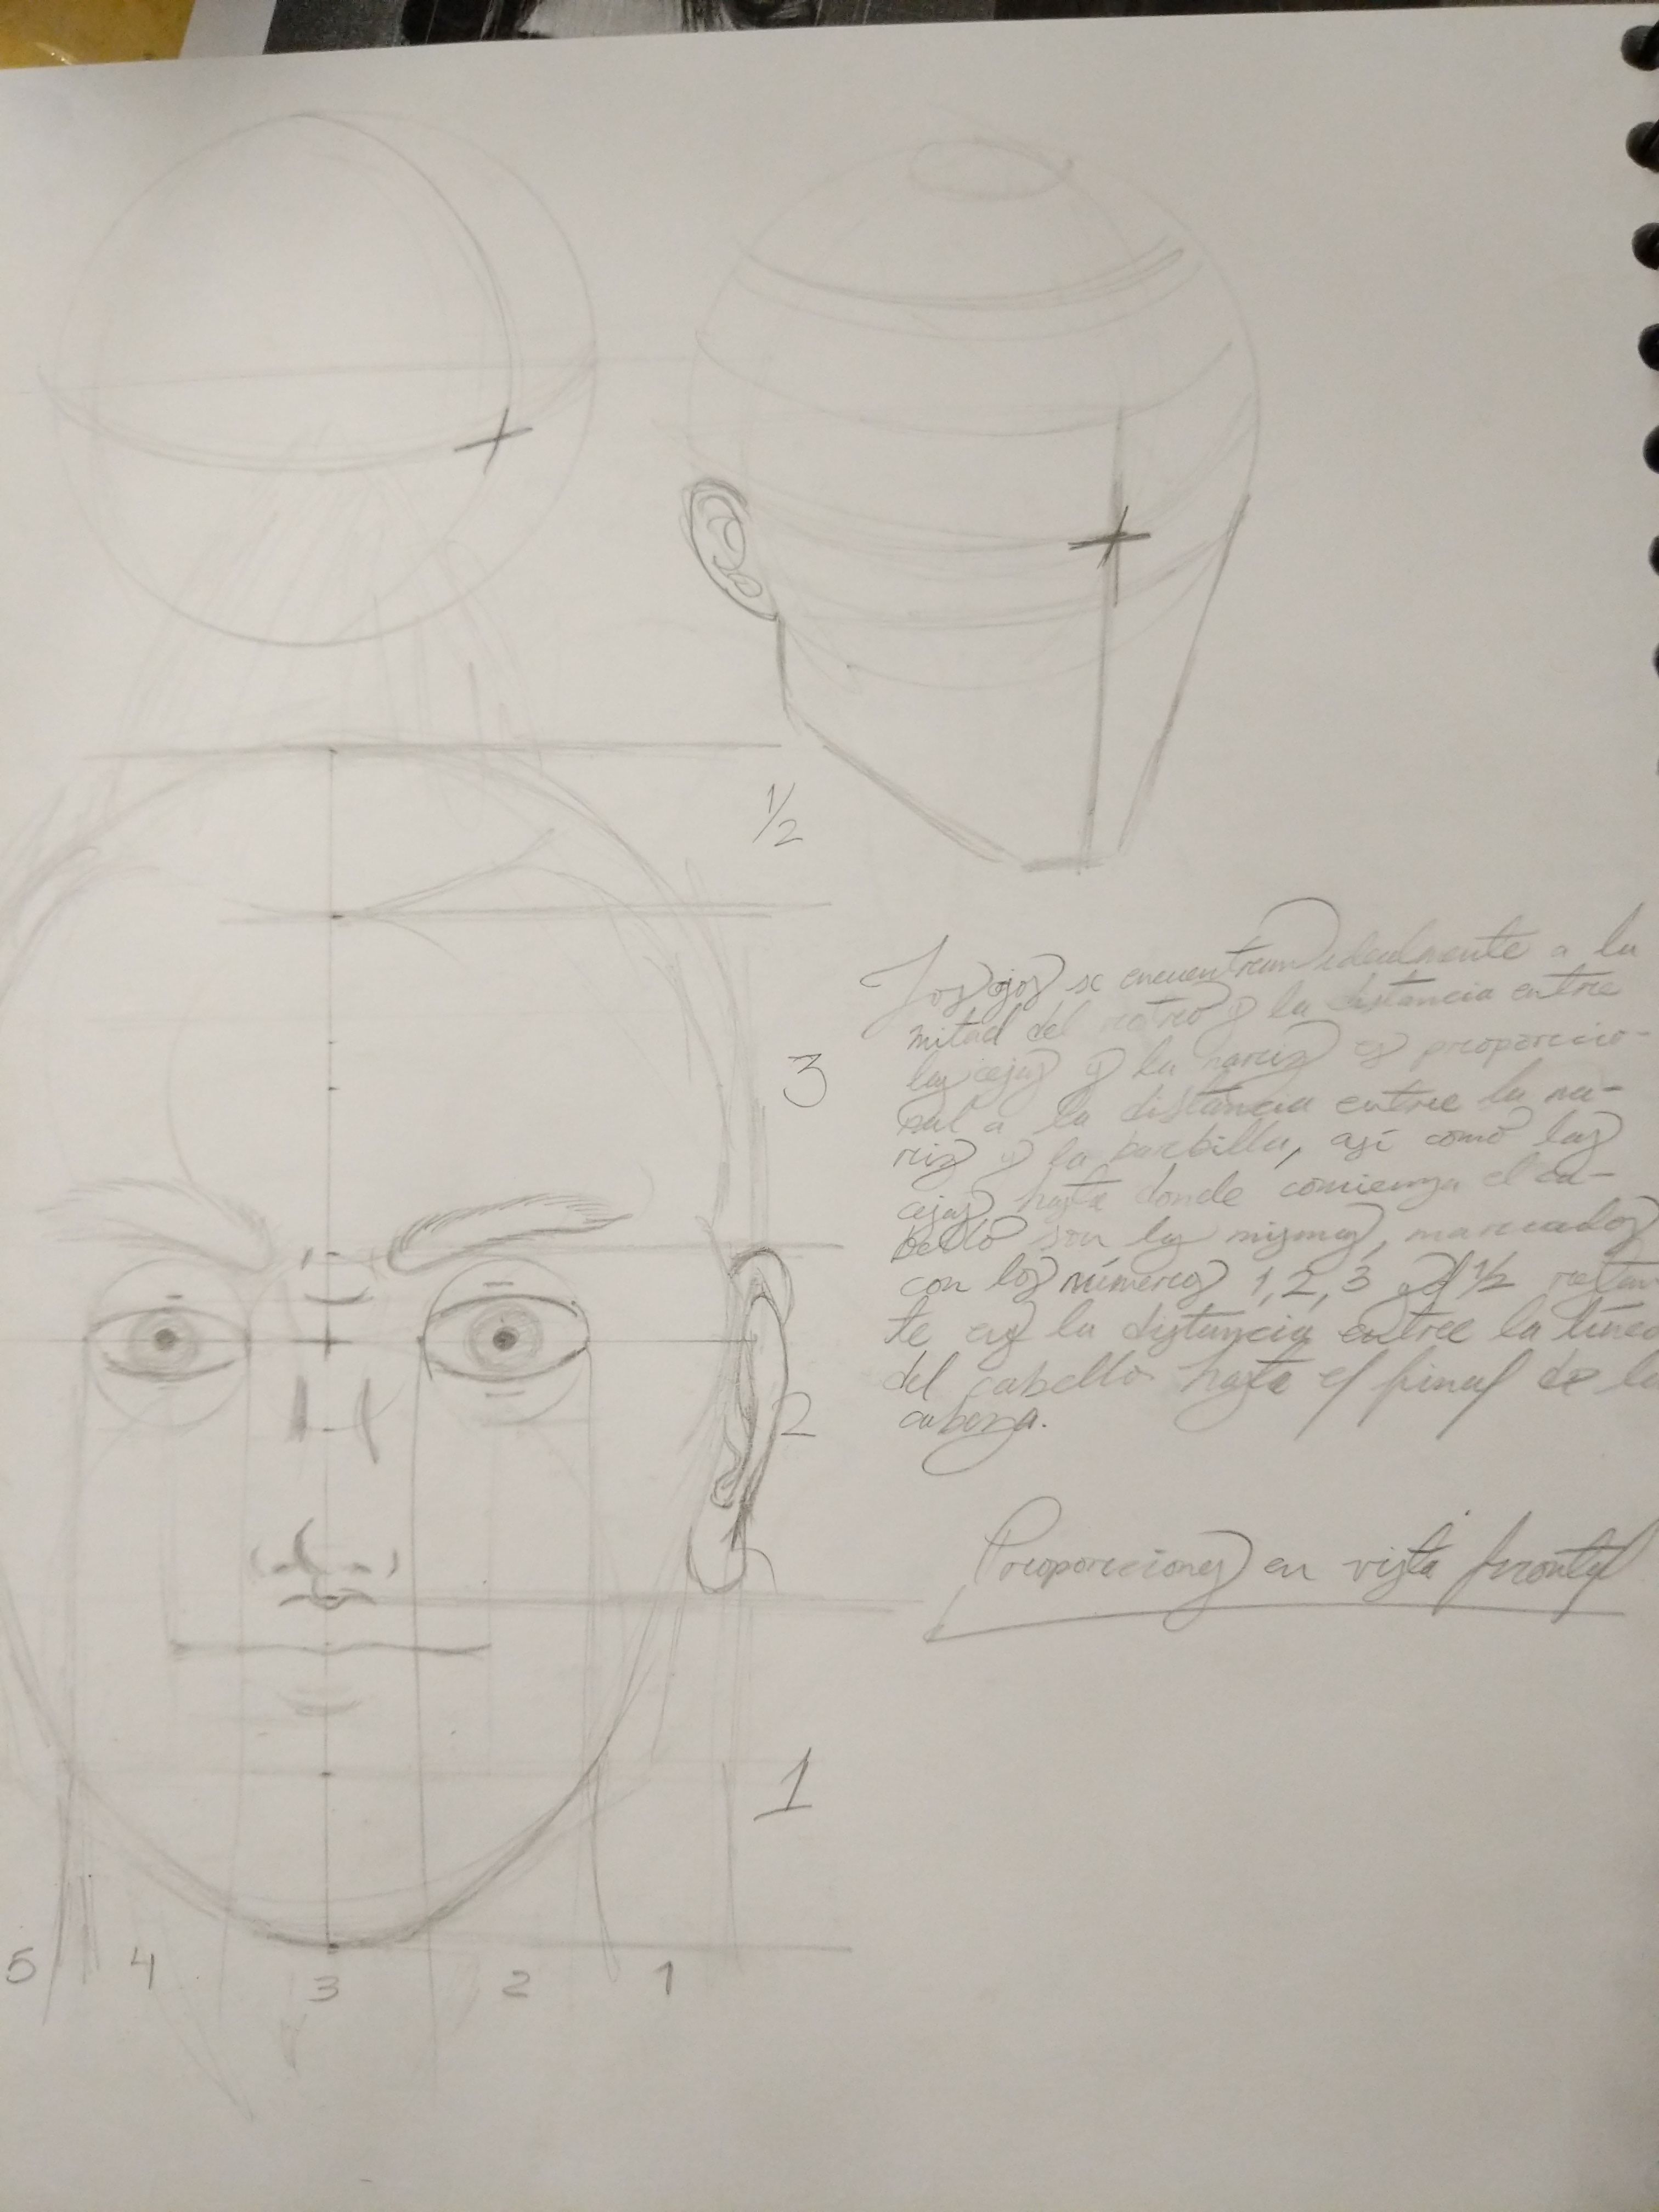 1/2
3
2
1
5 4 3 2 1
Los ojos se encuentran idealmente a la
mitad del rostro y la distancia entre
las cejas y la nariz es proporcio-
nal a la distancia entre la na-
riz y la barbilla, así como las
cejas hasta donde comienza el ca-
bello son las mismas, marcados
con los números 1, 2, 3 y el 1/2 restan
te es la distancia entre la línea
del cabello hasta el final de la
cabeza.
Proporciones en vista frontal